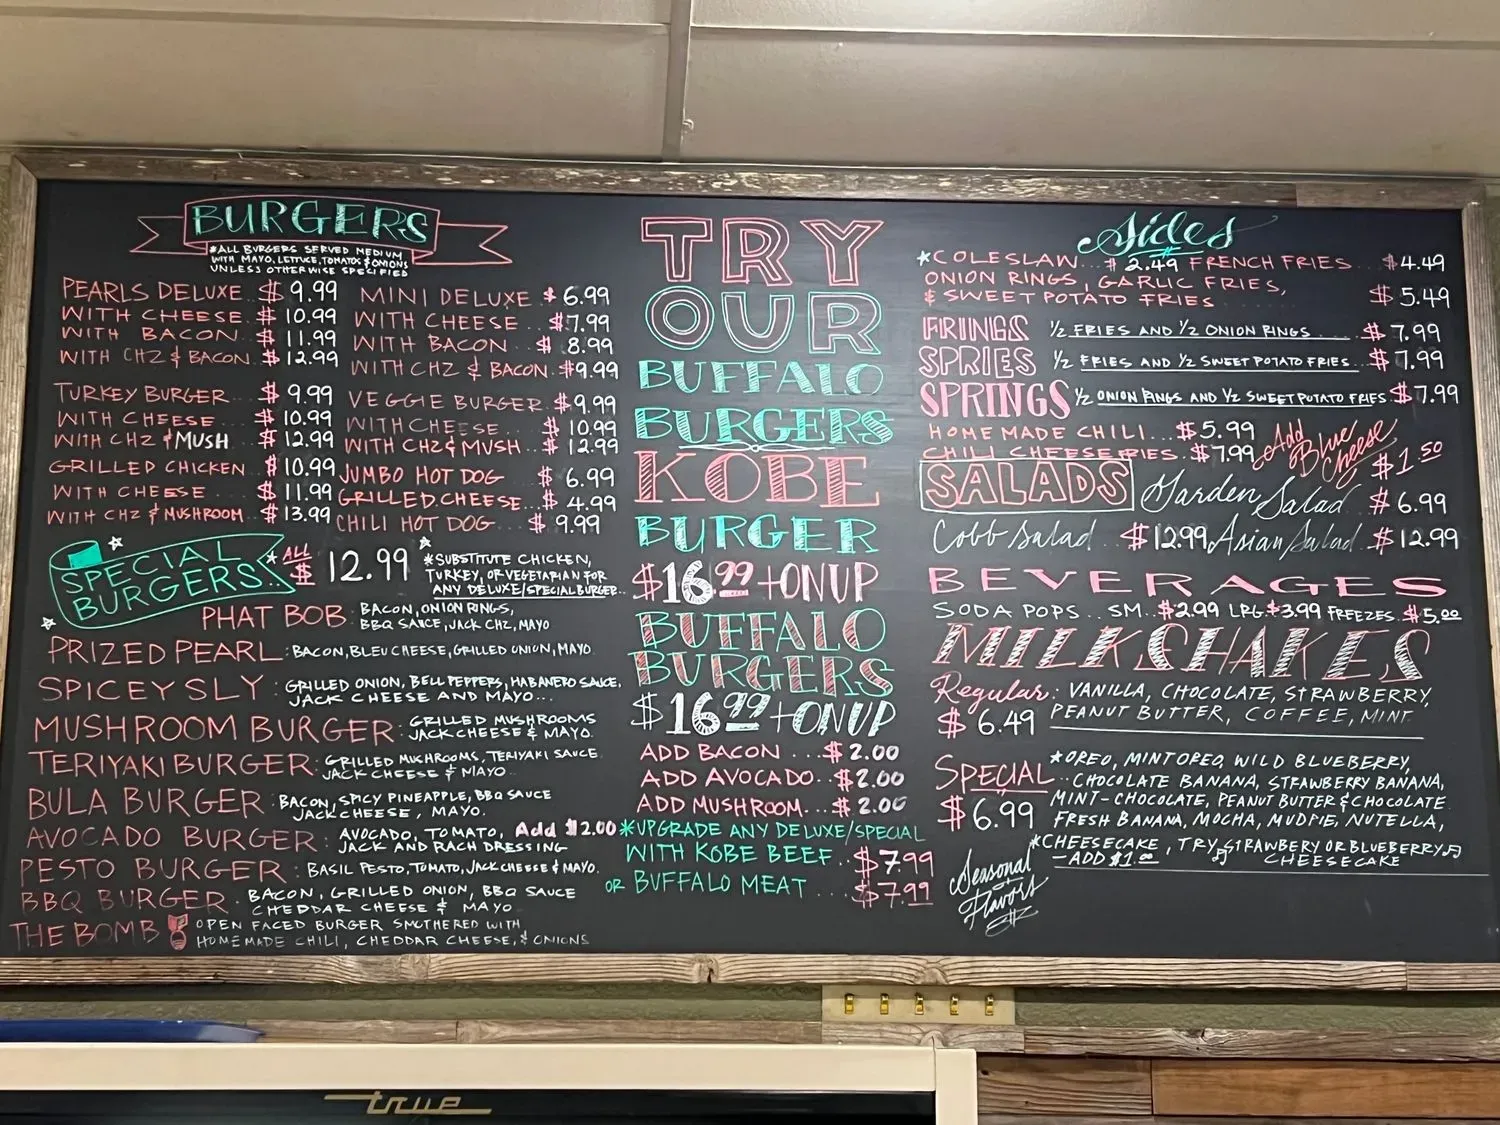 BURGERS
*ALL BURGERS SERVED MEDIUM
WITH MAYO, LETTUCE, TOMATOS & ONIONS
UNLESS OTHERWISE SPECIFIED
PEARLS DELUXE $ 9.99
WITH CHEESE $ 10.99
WITH BACON $ 11.99
WITH CHZ & BACON $ 12.99
TURKEY BURGER $ 9.99
WITH CHEESE $ 10.99
WITH CHZ & MUSH $ 12.99
GRILLED CHICKEN $ 10.99
WITH CHEESE $ 11.99
WITH CHZ & MUSHROOM $ 13.99
MINI DELUXE $ 6.99
WITH CHEESE $7.99
WITH BACON $ 8.99
WITH CHZ & BACON $9.99
VEGGIE BURGER $9.99
WITH CHEESE $ 10.99
WITH CHZ & MUSH $ 12.99
JUMBO HOT DOG $ 6.99
GRILLED CHEESE... $ 4.99
CHILI HOT DOG $ 9.99
SPECIAL
BURGERS
*ALL
$ 12.99
*SUBSTITUTE CHICKEN,
TURKEY, OR VEGETARIAN FOR
ANY DELUXE/SPECIAL BURGER..
PHAT BOB: BACON, ONION RINGS,
BBQ SAUCE, JACK CHZ, MAYO
PRIZED PEARL: BACON, BLEU CHEESE, GRILLED ONION, MAYO
SPICEY SLY: GRILLED ONION, BELL PEPPERS, HABANERO SAUCE,
JACK CHEESE AND MAYO...
MUSHROOM BURGER: GRILLED MUSHROOMS
JACK CHEESE & MAYO.
TERIYAKI BURGER: GRILLED MUSHROOMS, TERIYAKI SAUCE
JACK CHEESE & MAYO
BULA BURGER: BACON, SPICY PINEAPPLE, BBQ SAUCE
JACK CHEESE, MAYO.
AVOCADO BURGER: AVOCADO, TOMATO, Add $2.00
JACK AND RACH DRESSING
PESTO BURGER: BASIL PESTO, TOMATO, JACK CHEESE & MAYO.
BBQ BURGER. BACON, GRILLED ONION, BBQ SAUCE
CHEDDAR CHEESE & MAYO
THE BOMB OPEN FACED BURGER SMOTHERED WITH
HOMEMADE CHILI, CHEDDAR CHEESE, & ONIONS
TRY
OUR
BUFFALO
BURGERS
KOBE
BURGER
$16.99 + ON UP
BUFFALO
BURGERS
$16.99 + ON UP
ADD BACON ... $ 2.00
ADD AVOCADO.. $2.00
ADD MUSHROOM... $ 2.00
*UPGRADE ANY DELUXE/SPECIAL
WITH KOBE BEEF.. $7.99
OR BUFFALO MEAT ... $7.99
Sides
*COLESLAW... $ 2.49 FRENCH FRIES... $4.49
ONION RINGS, GARLIC FRIES,
& SWEET POTATO FRIES $ 5.49
FRINGS 1/2 FRIES AND 1/2 ONION RINGS $ 7.99
SPRIES 1/2 FRIES AND 1/2 SWEET POTATO FRIES... $7.99
SPRINGS 1/2 ONION RINGS AND 1/2 SWEET POTATO FRIES $7.99
HOMEMADE CHILI... $5.99
CHILI CHEESE FRIES. $7.99
Add Blue Cheese $1.50
SALADS Garden Salad $ 6.99
Cobb Salad $12.99 Asian Salad $ 12.99
BEVERAGES
SODA POPS... SM. $2.99 LRG $3.99 FREEZES. $5.00
MILKSHAKES
Regular: VANILLA, CHOCOLATE, STRAWBERRY,
$ 6.49 PEANUT BUTTER, COFFEE, MINT
SPECIAL
$6.99
*OREO, MINT OREO, WILD BLUEBERRY,
CHOCOLATE BANANA, STRAWBERRY BANANA,
MINT-CHOCOLATE, PEANUT BUTTER & CHOCOLATE
FRESH BANANA, MOCHA, MUDPIE, NUTELLA,
*CHEESECAKE, TRY STRAWBERY OR BLUEBERRY
-ADD $1.00 CHEESECAKE
Seasonal
Flavors
true